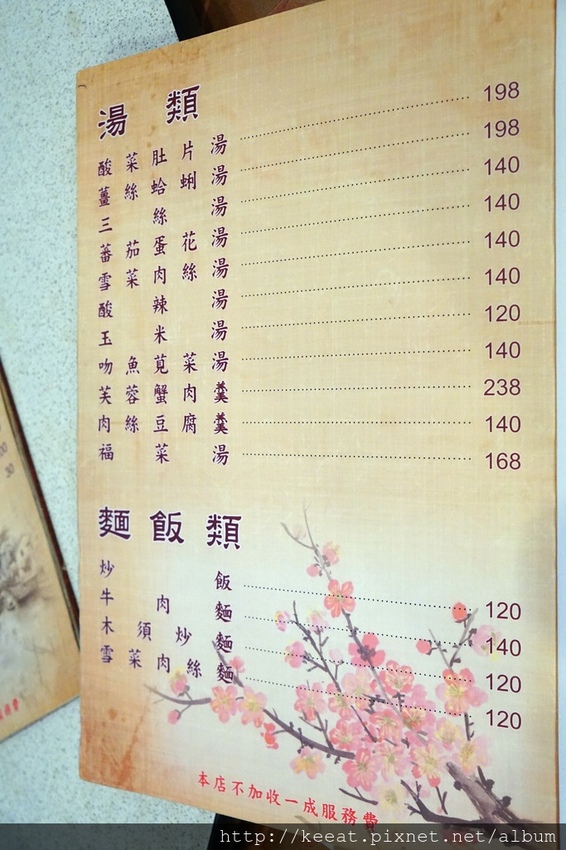 湯類
酸菜肚片湯 198
薑絲蛤蜊湯 198
三絲湯 140
蕃茄蛋花湯 140
雪菜肉絲湯 140
酸辣湯 140
玉米湯 120
吻魚莧菜湯 140
芙蓉蟹肉羹 238
肉絲豆腐羹 140
福菜湯 168
麵飯類
炒飯 120
牛肉麵 140
木須炒麵 120
雪菜肉絲麵 120
本店不加收一成服務費
00
30
http://keeat.pixnet.net/album